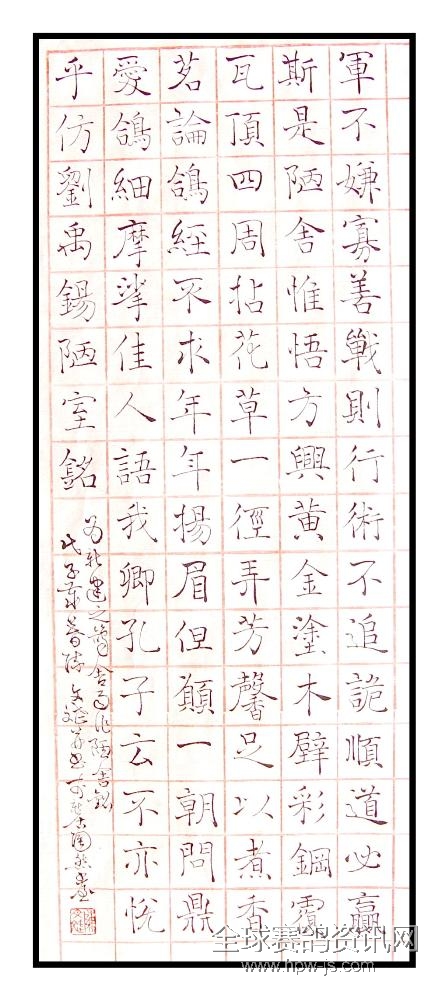 軍不嫌寡善戰則行術不追詭順道必贏
斯是陋舍惟悟方興黃金塗木壁彩鋼覆
瓦頂四周拈花草一徑弄芳馨足以煮香
茗論鴿經不求年年揚眉但願一朝問鼎
愛鴿細摩挲佳人語我卿孔子云不亦悅
乎仿劉禹錫陋室銘
為新建之鴿舍而作陋舍銘
戊子歲暮
全球赛鸽资讯网
www.hpw-js.com